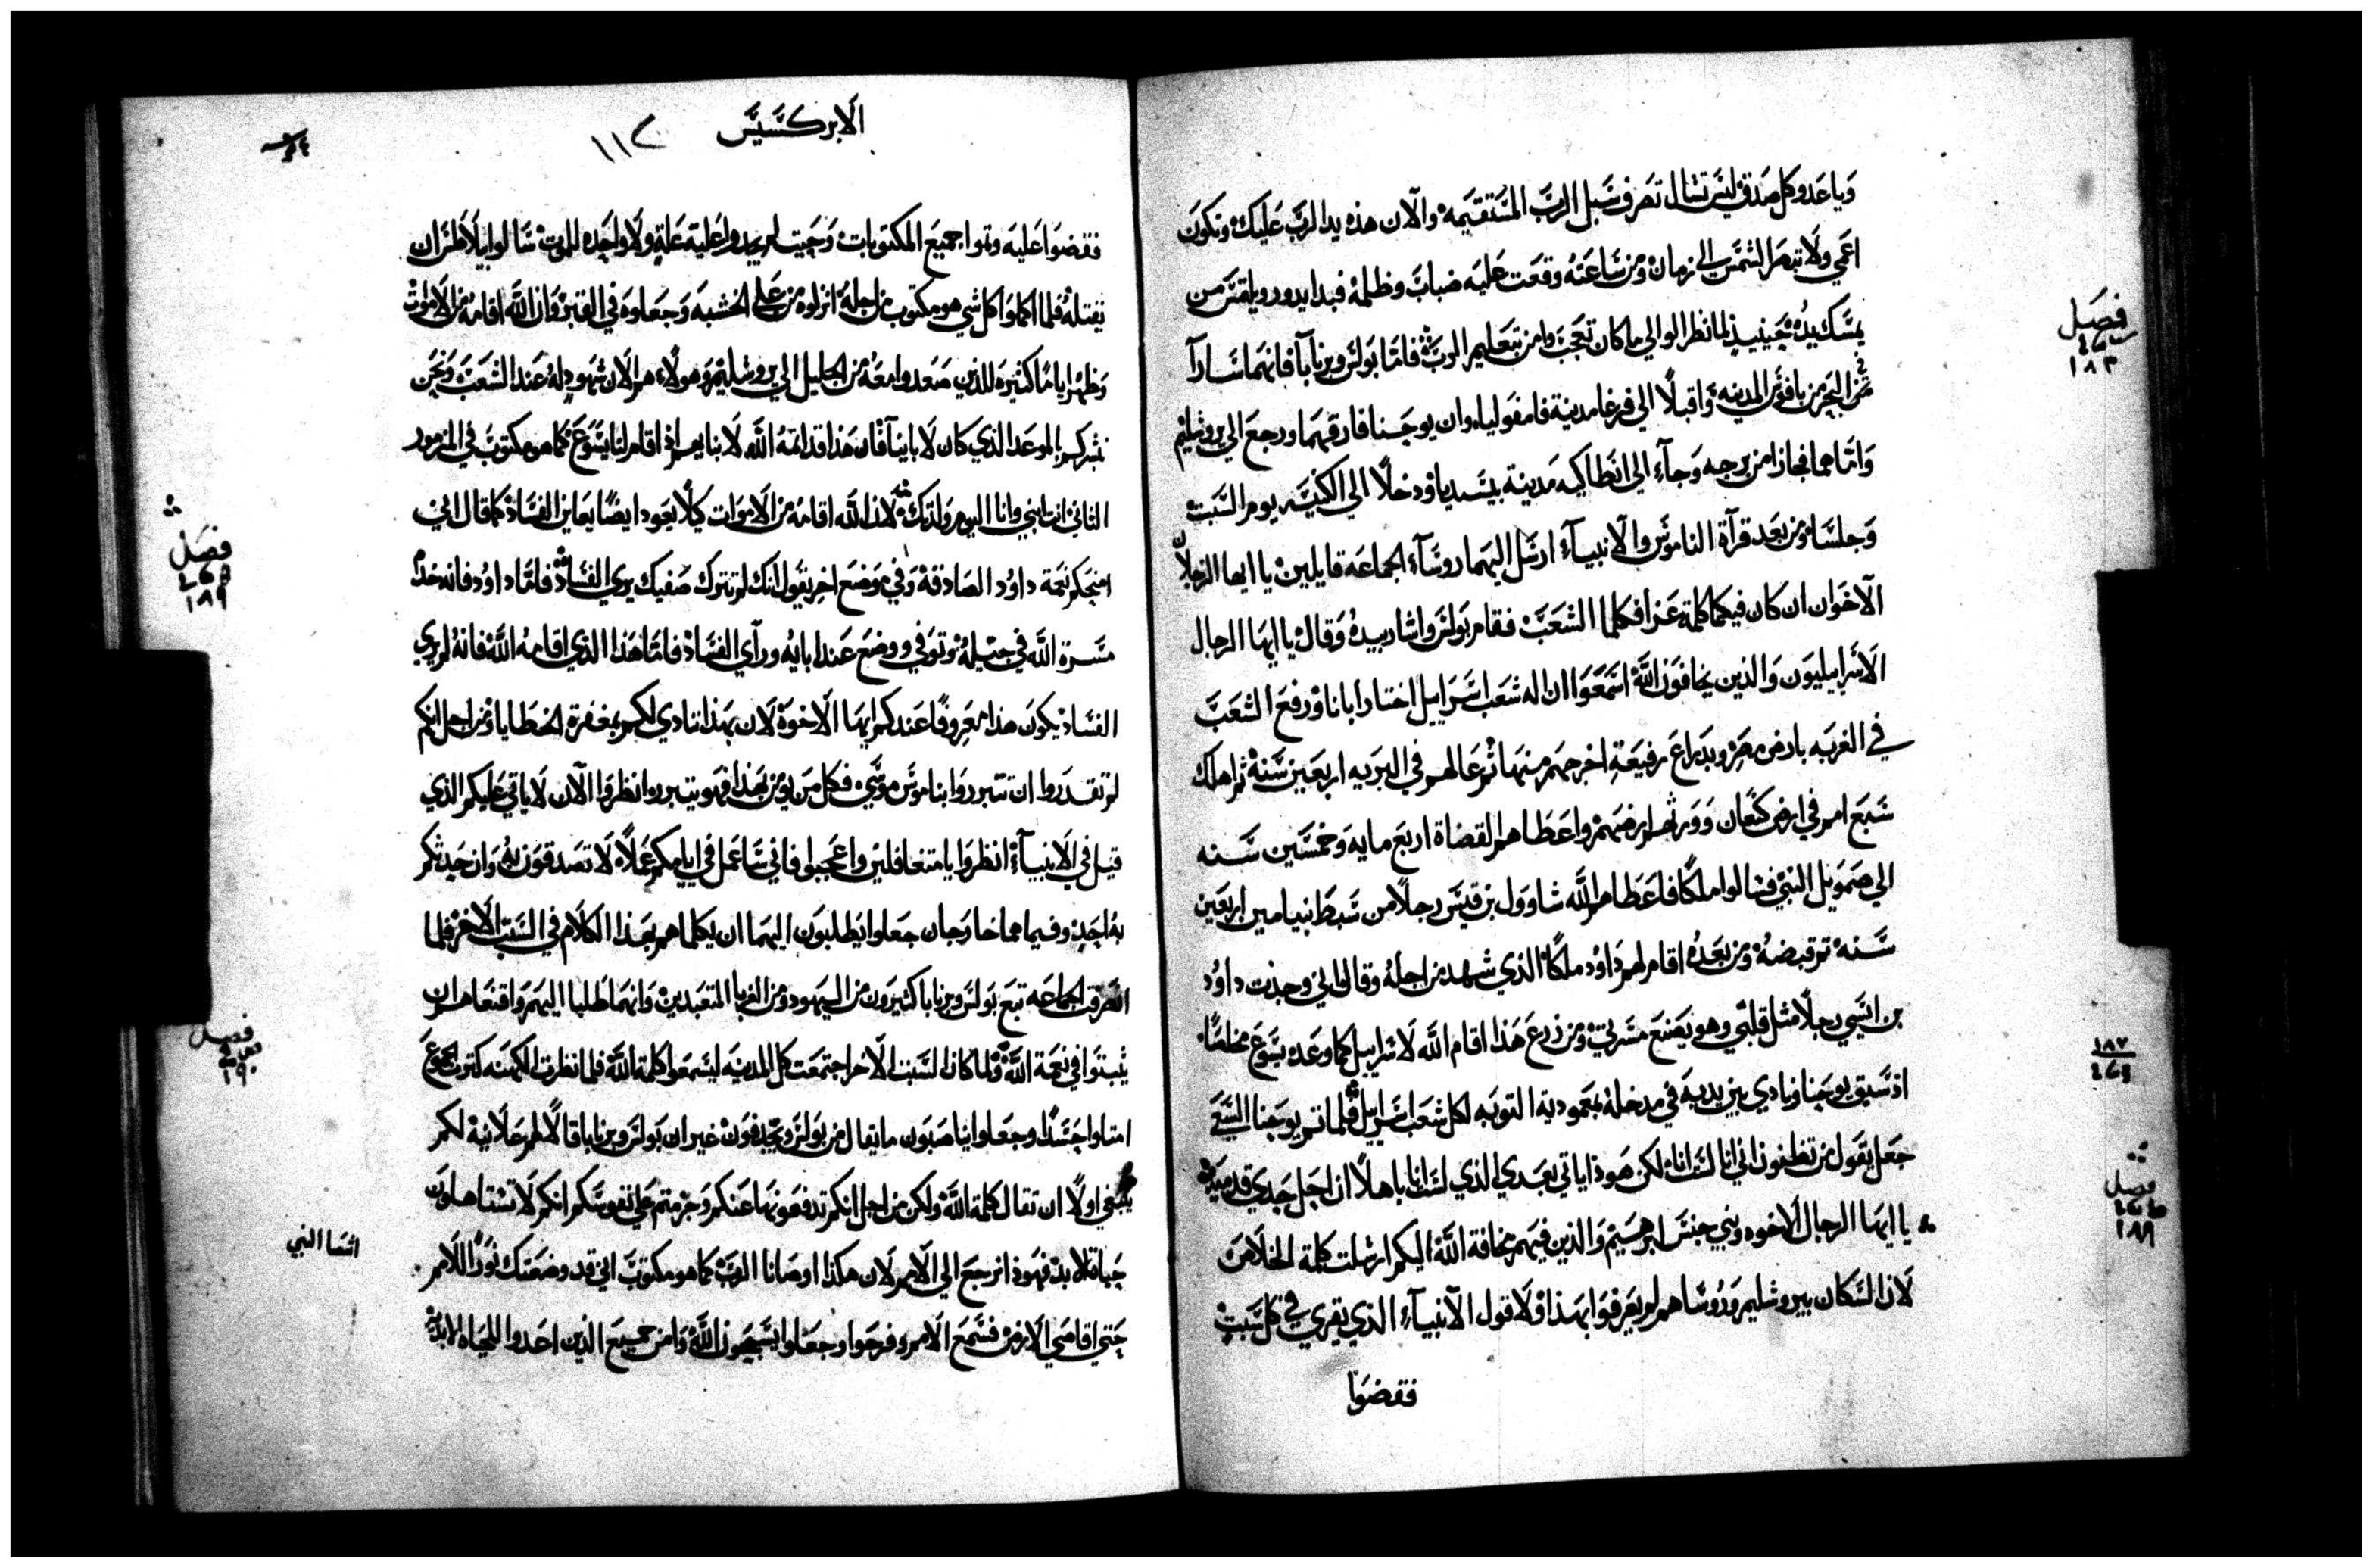 وياعدو كل صدق ليس تشال تصرف سبل الرب المستقيمه والان هذه يد الرب عليك وتكون
اعمي ولا تبصر الشمس الي زمان ومن ساعته وقعت عليه ضباب وظلمه فبدا يدور ويلتمس من
يمسك يده حينيذ لما نظر الوالي ما كان تعجب وامن بتعليم الرب فاما بولس وبرنابا فانهما سارا
فصل
١٨٣
في البحر من بافوس المدينه واقبلا الي فرغا مدينة فامفوليا وان يوحنا فارقهما ورجع الي يروشليم
واما هما فجازا من برجه وجآء الي انطاكيه مدينة بيسيديا ودخلا الي الكنيسه يوم السبت
وجلسا ومن بعد قرآة الناموس والآنبيآء ارسل اليهما روسآء الجماعه قايلين يا ايها الرجلان
الآخوان ان كان فيكما كلمة عزا فكلما الشعب فقام بولس واشار بيده وقال يا ايها الرجال
الاسراييليون والذين يخافون الله اسمعوا ان اله شعب اسراييل اختار ابانا ورفع الشعب
في الغربه بارض مصر وبذراع رفيعة اخرجهم منها ثم عالهم في البريه اربعين سنة ثم اهلك
سبع امم في ارض كنعان وورثهم ارضهم واعطاهم القضاة اربع مايه وخمسين سنه
الي صمويل النبي فسالوا ملكا فاعطاهم الله شاوول بن قيس رجلا من سبط بنيامين اربعين
سنه ثم قبضه ومن بعده اقام لهم داوُد ملكا الذي شهد من اجله وقال اني وجدت داوُد
بن ايسي رجلا مثل قلبي وهو يصنع مسرتي ومن زرع هذا اقام الله لاسراييل كما وعد يسوع مخلصا
١٨٧
اذ سبق يوحنا ونادي بين يديه في مدخله بمعمودية التوبه لكل شعب اسراييل فلما تم يوحنا السعي
جعل يقول من تظنون اني انا لست انا لكن هوذا ياتي بعدي الذي لست انا باهلا ان احل حدي قدميه
فصل
١٨٨
يا ايها الرجال الاخوه وبني جنس ابرهيم والذين فيهم مخافة الله اليكم ارسلت كلمة الخلاص
لان السكان بيروشليم وروساهم لم يعرفوا بهذا ولا قول الآنبيآء الذي يقري في كل سبت
فقضوا
الابركسيس
١١٢
فقضوا عليه وتموا جميع المكتوبات وحيث لم يجدوا عليه علة ولا واحده للموت سالوا بيلاطس ان
يقتله فلما اكملوا كل شي هو مكتوب من اجله انزلوه من علي الخشبه وجعلوه في القبر وان الله اقامه من الاموات
وظهر اياما كثيره للذين صعدوا معه من الجليل الي يروشليم وهولاء هم الان شهود له عند الشعب ونحن
نبشركم بالموعد الذي كان لابايينا فان هذا قد اتمه الله لابنايهم اذ اقام لنا يسوع كما هو مكتوب في المزمور
الثاني انت ابني وانا اليوم ولدتك لان الله اقامه من الاموات كيلا يعود ايضا يعاين الفساد كما قال اني
فصل
١٨٩
امنحكم نعمة داوُد الصادقة وفي موضع اخر يقول انك لم تترك صفيك يري الفساد فاما داوُد فانه خدم
مسرة الله في جيله وتوفي ووضع عند ابايه ورآي الفساد فاما هذا الذي اقامه الله فانه لم يري
الفساد يكون هذا معروفا عندكم ايها الآخوة لان بهذا نادي لكم بمغفرة الخطايا ومن اجل انكم
لم تقدروا ان تتبرروا بناموس موسي فكل من يومن بهذا فهو يتبرر انظروا الآن لا ياتي عليكم الذي
قيل في الانبيآء انظروا يا متغافلين واعجبوا فاني ساعمل في ايامكم عملا لا تصدقون به وان حدثكم
به احد وفيما هما خارجان جعلوا يطلبون اليهما ان يكلماهم بهذا الكلام في السبت الاخر فلما
انصرفت الجماعه تبع بولس وبرنابا كثيرون من اليهود ومن الغربا المتعبدين وانهما طلبا اليهم واقنعاهم ان
فصل
١٩٠
يثبتوا في نعمة الله ولما كان السبت الآخر اجتمعت كل المدينه ليسمعوا كلمة الله فلما نظرت الكهنه كثرة الجموع
امتلوا حسدا وجعلوا يناصبون ما يقال من بولس ويجدفون غير ان بولس وبرنابا قالا لهم علانية لكم
ينبغي اولا ان تقال كلمة الله ولكن من اجل انكم تدفعونها عنكم وجزمتم علي نفوسكم انكم لا تستاهلون
اشعيا النبي
حياة الابد فهوذا نرجع الي الامم لان هكذا اوصانا الرب كما هو مكتوب اني قد وضعتك نورا للامم
حتي اقاصي الارض فسمع الامم وفرحوا وجعلوا يسبحون الله وامن جميع الذين اعدوا للحياه الابديه